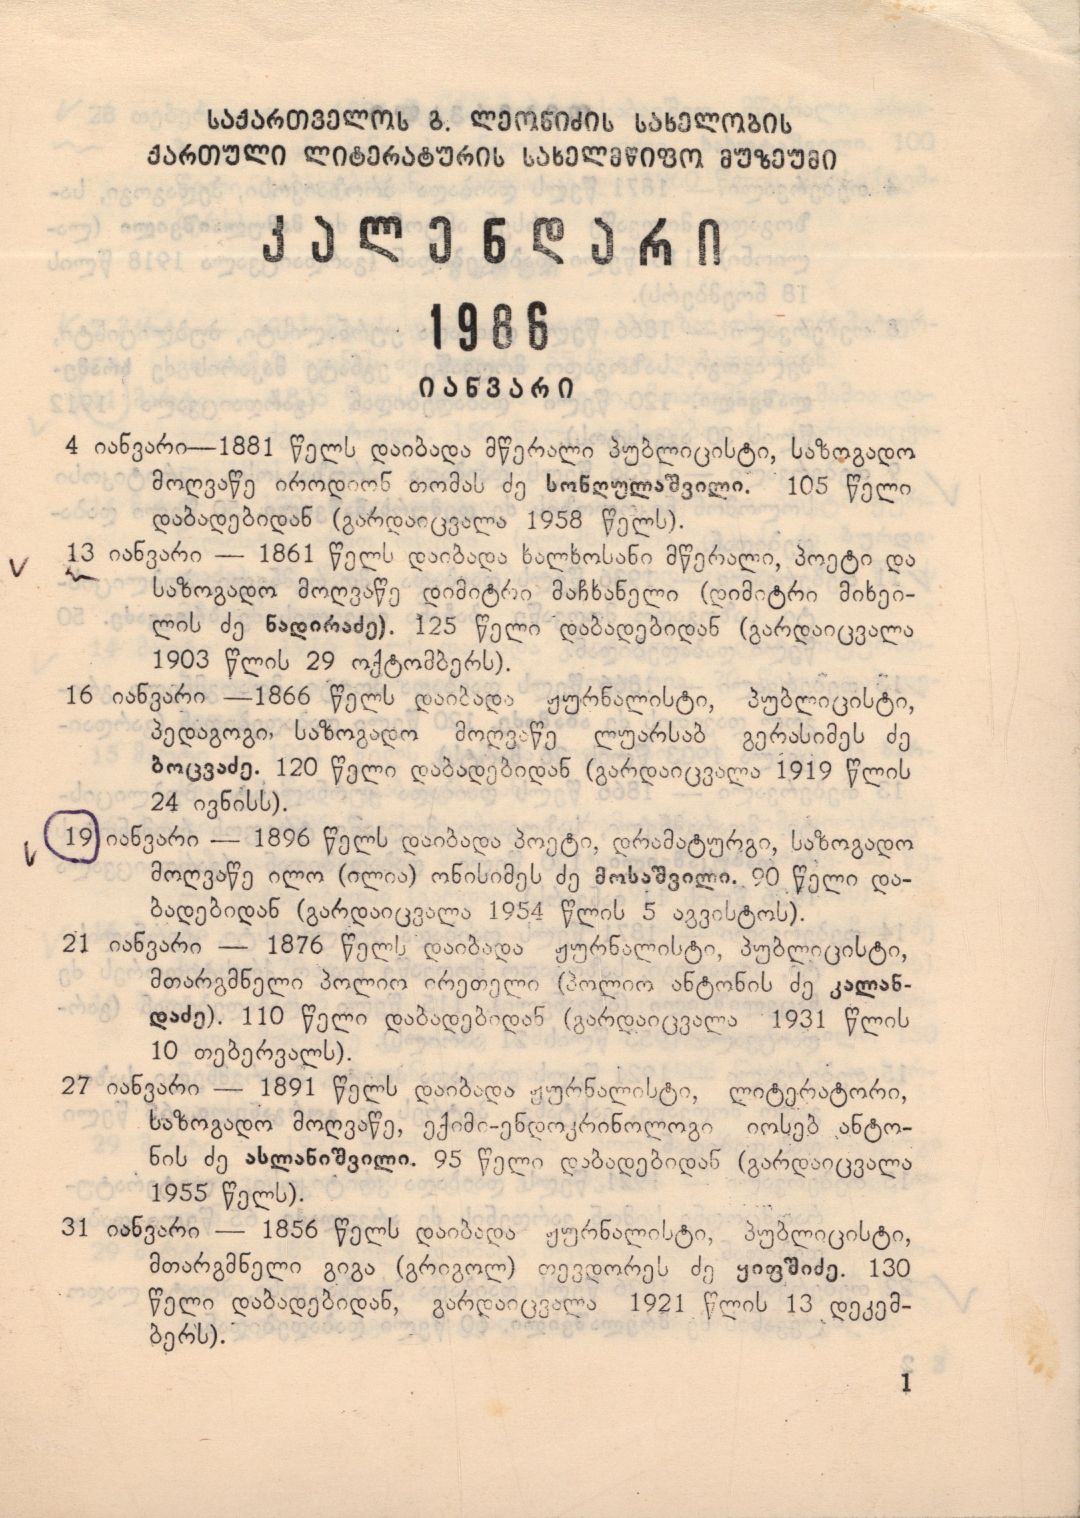 საქართველოს გ. ლეონიძის სახელობის
ქართული ლიტერატურის სახელმწიფო მუზეუმი
კალენდარი
1986
იანვარი
4 იანვარი—1881 წელს დაიბადა მწერალი პუბლიცისტი, საზოგადო
მოღვაწე იროდიონ თომას ძე სონღულაშვილი. 105 წელი
დაბადებიდან (გარდაიცვალა 1958 წელს).
13 იანვარი — 1861 წელს დაიბადა ხალხოსანი მწერალი, პოეტი და
საზოგადო მოღვაწე დიმიტრი მაჩხანელი (დიმიტრი მიხეი-
ლის ძე ნადირაძე). 125 წელი დაბადებიდან (გარდაიცვალა
1903 წლის 29 ოქტომბერს).
16 იანვარი —1866 წელს დაიბადა ჟურნალისტი, პუბლიცისტი,
პედაგოგი, საზოგადო მოღვაწე ლუარსაბ გერასიმეს ძე
ბოცვაძე. 120 წელი დაბადებიდან (გარდაიცვალა 1919 წლის
24 ივნისს).
19 იანვარი — 1896 წელს დაიბადა პოეტი, დრამატურგი, საზოგადო
მოღვაწე ილო (ილია) ონისიმეს ძე მოსაშვილი. 90 წელი და-
ბადებიდან (გარდაიცვალა 1954 წლის 5 აგვისტოს).
21 იანვარი — 1876 წელს დაიბადა ჟურნალისტი, პუბლიცისტი,
მთარგმნელი პოლიო ირეთელი (პოლიო ანტონის ძე კალან-
დაძე). 110 წელი დაბადებიდან (გარდაიცვალა 1931 წლის
10 თებერვალს).
27 იანვარი — 1891 წელს დაიბადა ჟურნალისტი, ლიტერატორი,
საზოგადო მოღვაწე, ექიმი-ენდოკრინოლოგი იოსებ ანტო-
ნის ძე ასლანიშვილი. 95 წელი დაბადებიდან (გარდაიცვალა
1955 წელს).
31 იანვარი — 1856 წელს დაიბადა ჟურნალისტი, პუბლიცისტი,
მთარგმნელი გიგა (გრიგოლ) თევდორეს ძე ყიფშიძე. 130
წელი დაბადებიდან, გარდაიცვალა 1921 წლის 13 დეკემ-
ბერს).
1